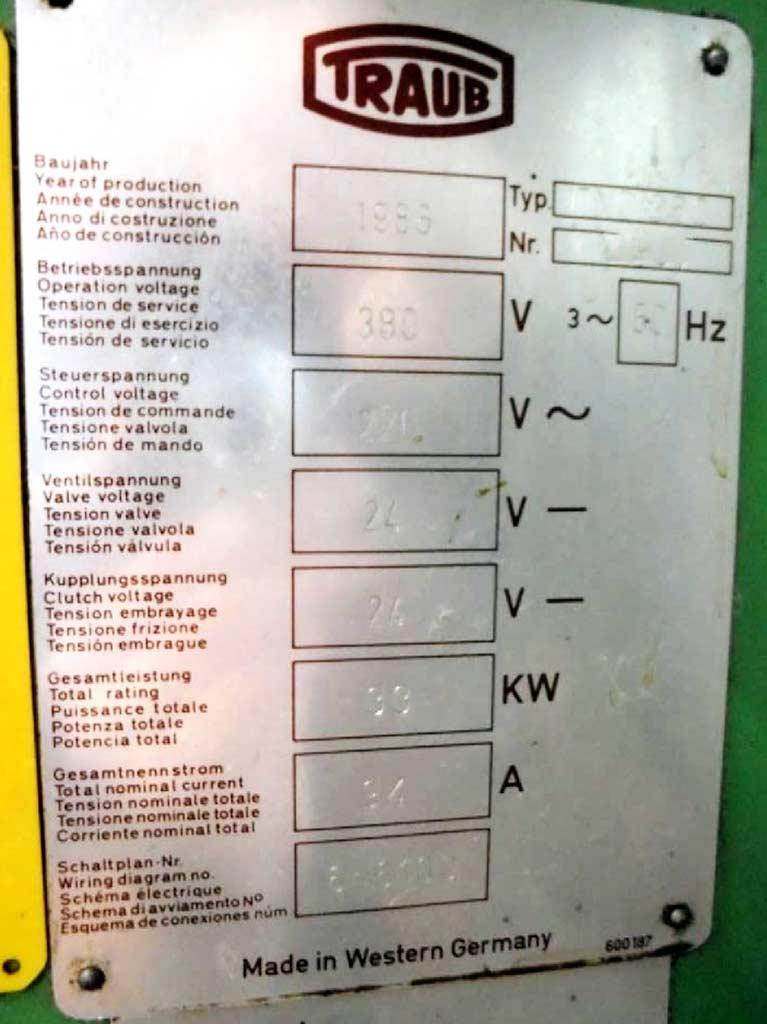 TRAUB
Baujahr
Year of production
Année de construction
Anno di costruzione
Año de construcción
1986
Typ.
Nr.
Betriebsspannung
Operation voltage
Tension de service
Tensione di esercizio
Tensión de servicio
380
V 3~ Hz
Steuerspannung
Control voltage
Tension de commande
Tensione valvola
Tensión de mando
220
V ~
Ventilspannung
Valve voltage
Tension valve
Tensione valvola
Tensión válvula
24
V —
Kupplungsspannung
Clutch voltage
Tension embrayage
Tensione frizione
Tensión embrague
24
V —
Gesamtleistung
Total rating
Puissance totale
Potenza totale
Potencia total
KW
Gesamtnennstrom
Total nominal current
Tension nominale totale
Tensione nominale totale
Corriente nominal total
34
A
Schaltplan-Nr.
Wiring diagram no.
Schéma électrique
Schema di avviamento Nº
Esquema de conexiones núm
Made in Western Germany
600187